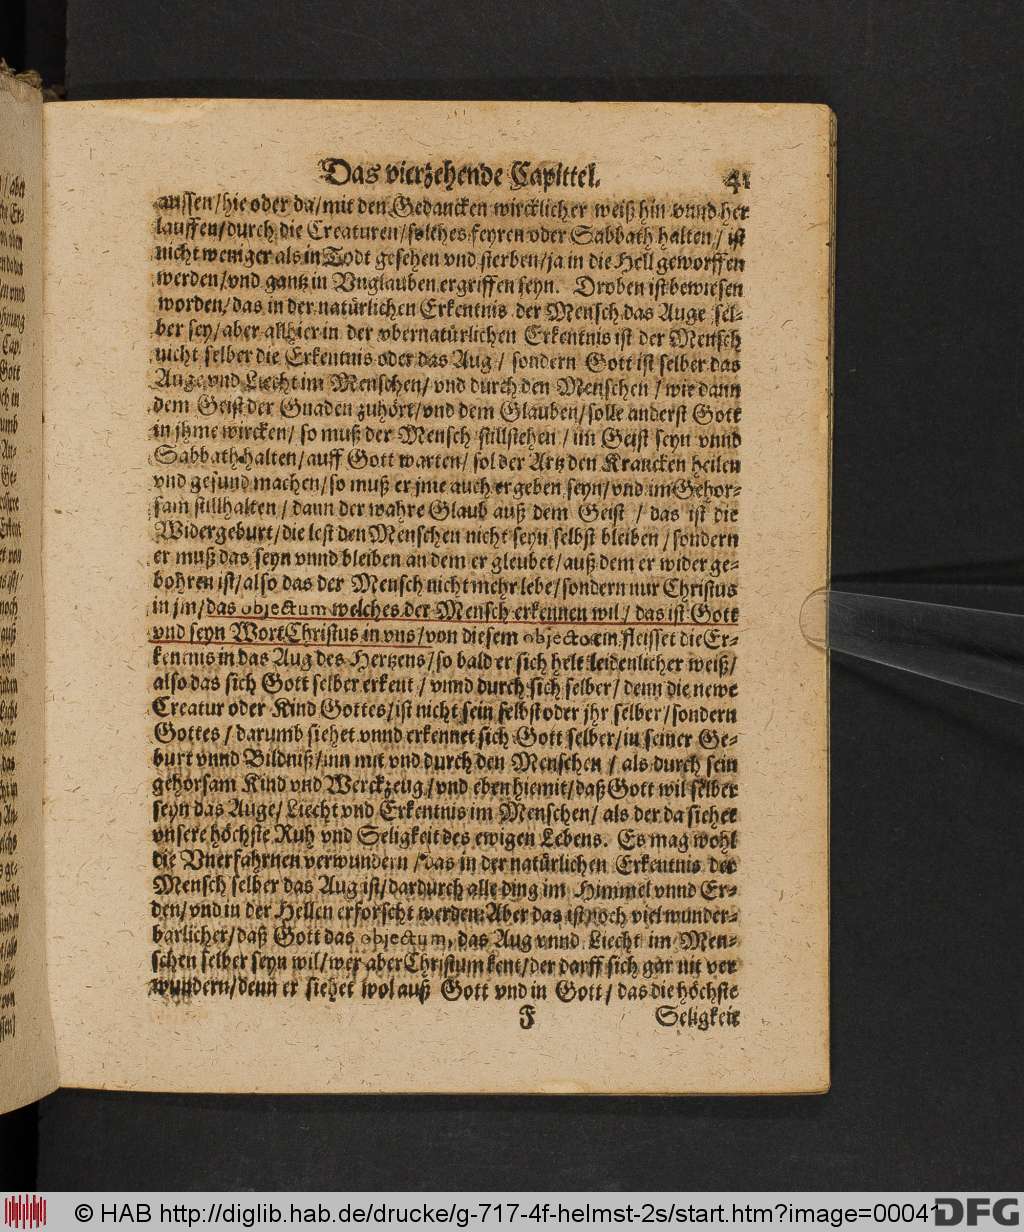 Das vierzehende Capittel. 41
aussen/hie oder da/mit den Gedancken wircklicher weiß hin vnnd her
lauffen/durch die Creaturen/solches feyren oder Sabbath halten/ ist
nicht weniger als in Todt gesehen vnd sterben/ja in die Hell geworffen
werden/vnd gantz in Vnglauben ergriffen seyn. Droben ist bewiesen
worden/das in der natürlichen Erkentnis der Mensch das Auge sel-
ber sey/aber allhier in der vbernatürlichen Erkentnis ist der Mensch
nicht selber die Erkentnis oder das Aug/ sondern Gott ist selber das
Auge vnd Liecht im Menschen/ vnd durch den Menschen/ wie dann
dem Geist der Gnaden zuhört/vnd dem Glauben/solle anderst Gott
in jhme wircken/ so muß der Mensch stillstehen/im Geist seyn vnnd
Sabbath halten/auff Gott warten/ sol der Artz den Krancken heilen
vnd gesund machen/so muß er jme auch ergeben seyn/vnd im Gehor-
sam stillhalten/ dann der wahre Glaub auß dem Geist/ das ist die
Widergeburt/die lest den Menschen nicht seyn selbst bleiben/sondern
er muß das seyn vnnd bleiben an dem er gleubet/auß dem er wider ge-
bohren ist/also das der Mensch nicht mehr lebe/sondern nur Christus
in jm/das objectum welches der Mensch erkennen wil/ das ist Gott
vnd seyn Wort Christus in vns/von diesem objecto ein fleisset die Er-
kentnis in das Aug des Hertzens/so bald er sich helt leidenlicher weiß/
also das sich Gott selber erkent/ vnnd durch sich selber/ denn die newe
Creatur oder Kind Gottes/ist nicht sein selbst oder jhr selber/sondern
Gottes/ darumb siehet vnnd erkennet sich Gott selber/in seiner Ge-
burt vnnd Bildniß/inn mit vnd durch den Menschen/ als durch sein
gehorsam Kind vnd Werckzeug/vnd eben hiemit/daß Gott wil selber
seyn das Auge/Liecht vnd Erkentnis im Menschen/ als der da siehet
vnsere höchste Ruh vnd Seligkeit des ewigen Lebens. Es mag wohl
die Vnerfahrnen verwundern/das in der natürlichen Erkentnis der
Mensch selber das Aug ist/dardurch alle ding im Himmel vnnd Er-
den/vnd in der Hellen erforscht werden: Aber das ist noch viel wunder-
barlicher/daß Gott das objectum, das Aug vnnd Liecht im Men-
schen selber seyn wil/wer aber Christum kent/der darff sich gar nit ver
wundern/denn er siehet wol auß Gott vnd in Gott/ das die höchste
F Seligkeit
© HAB http://diglib.hab.de/drucke/g-717-4f-helmst-2s/start.htm?image=00041
DFG